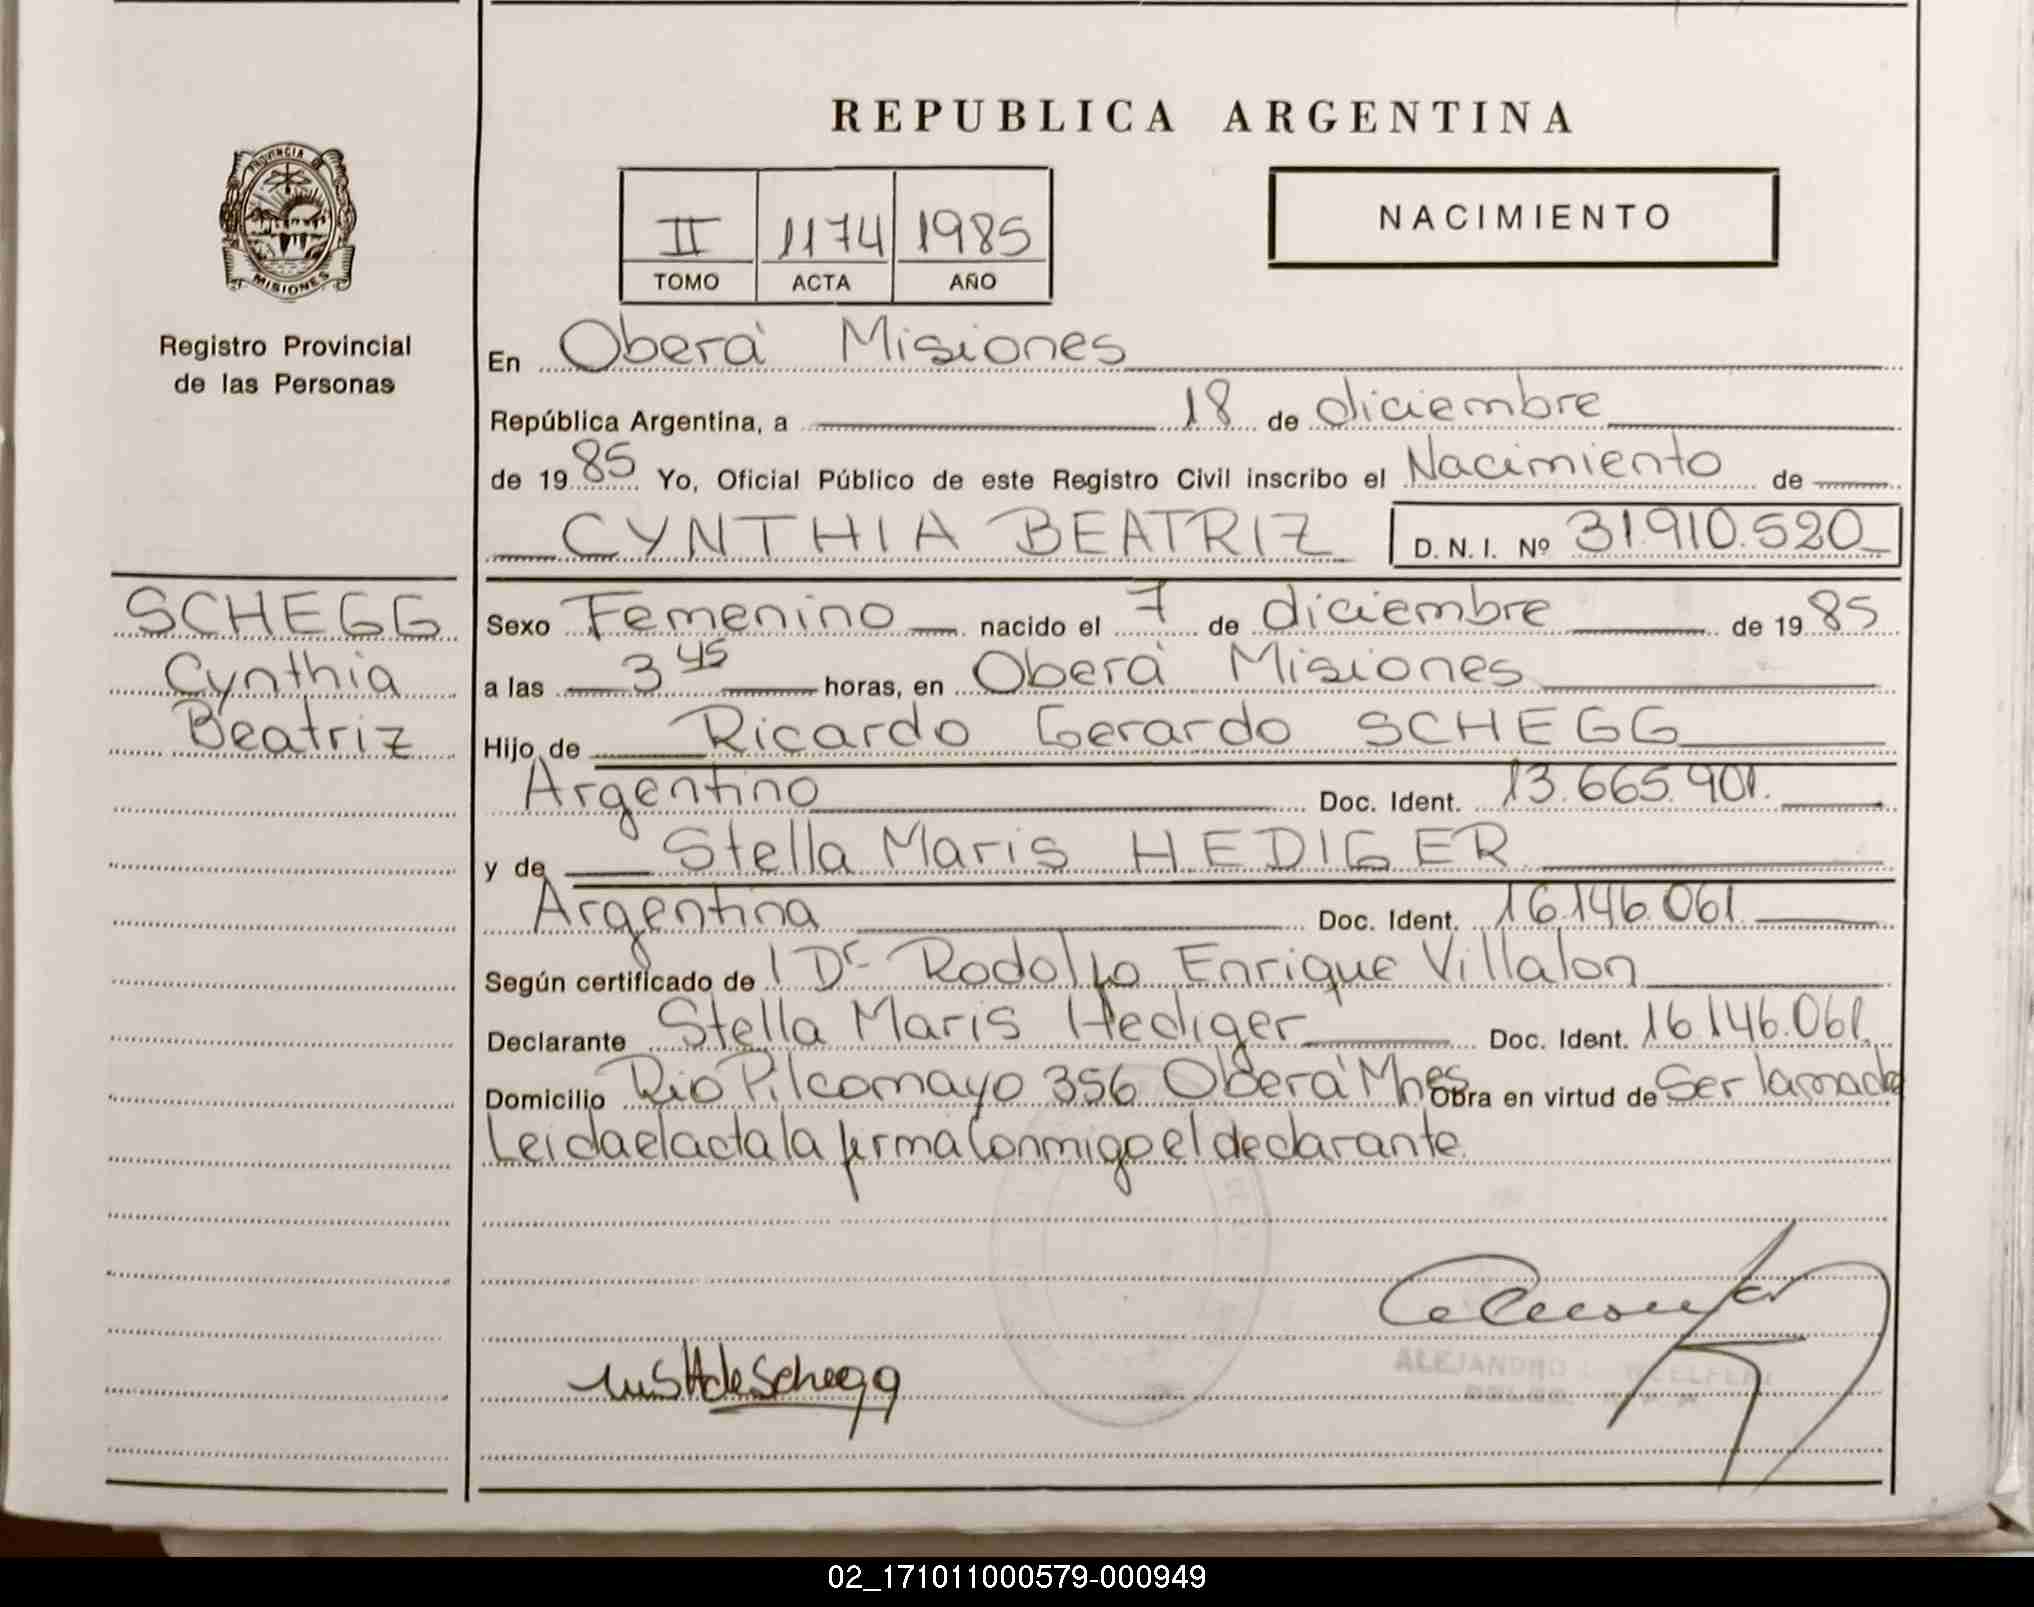 REPUBLICA ARGENTINA
PROVINCIA DE
MISIONES
Registro Provincial
de las Personas
II 1174 1985
TOMO ACTA AÑO
NACIMIENTO
En Oberá Misiones
República Argentina, a 18 de diciembre
de 1985 Yo, Oficial Público de este Registro Civil inscribo el Nacimiento de
CYNTHIA BEATRIZ D. N. I. Nº 31.910.520
SCHEGG
Cynthia
Beatriz
Sexo Femenino nacido el 7 de diciembre de 1985
a las 3 45 horas, en Oberá Misiones
Hijo de Ricardo Gerardo SCHEGG
Argentino Doc. Ident. 13.665.901.
y de Stella Maris HEDIGER
Argentina Doc. Ident. 16.146.061
Según certificado de l Dr Rodolfo Enrique Villalon
Declarante Stella Maris Hediger Doc. Ident. 16.146.061.
Domicilio Rio Pilcomayo 356 Oberá Mnes Obra en virtud de Ser la madre
Leida el acta la firma Conmigo el declarante
de Schegg
ALEJANDRO
02_171011000579-000949